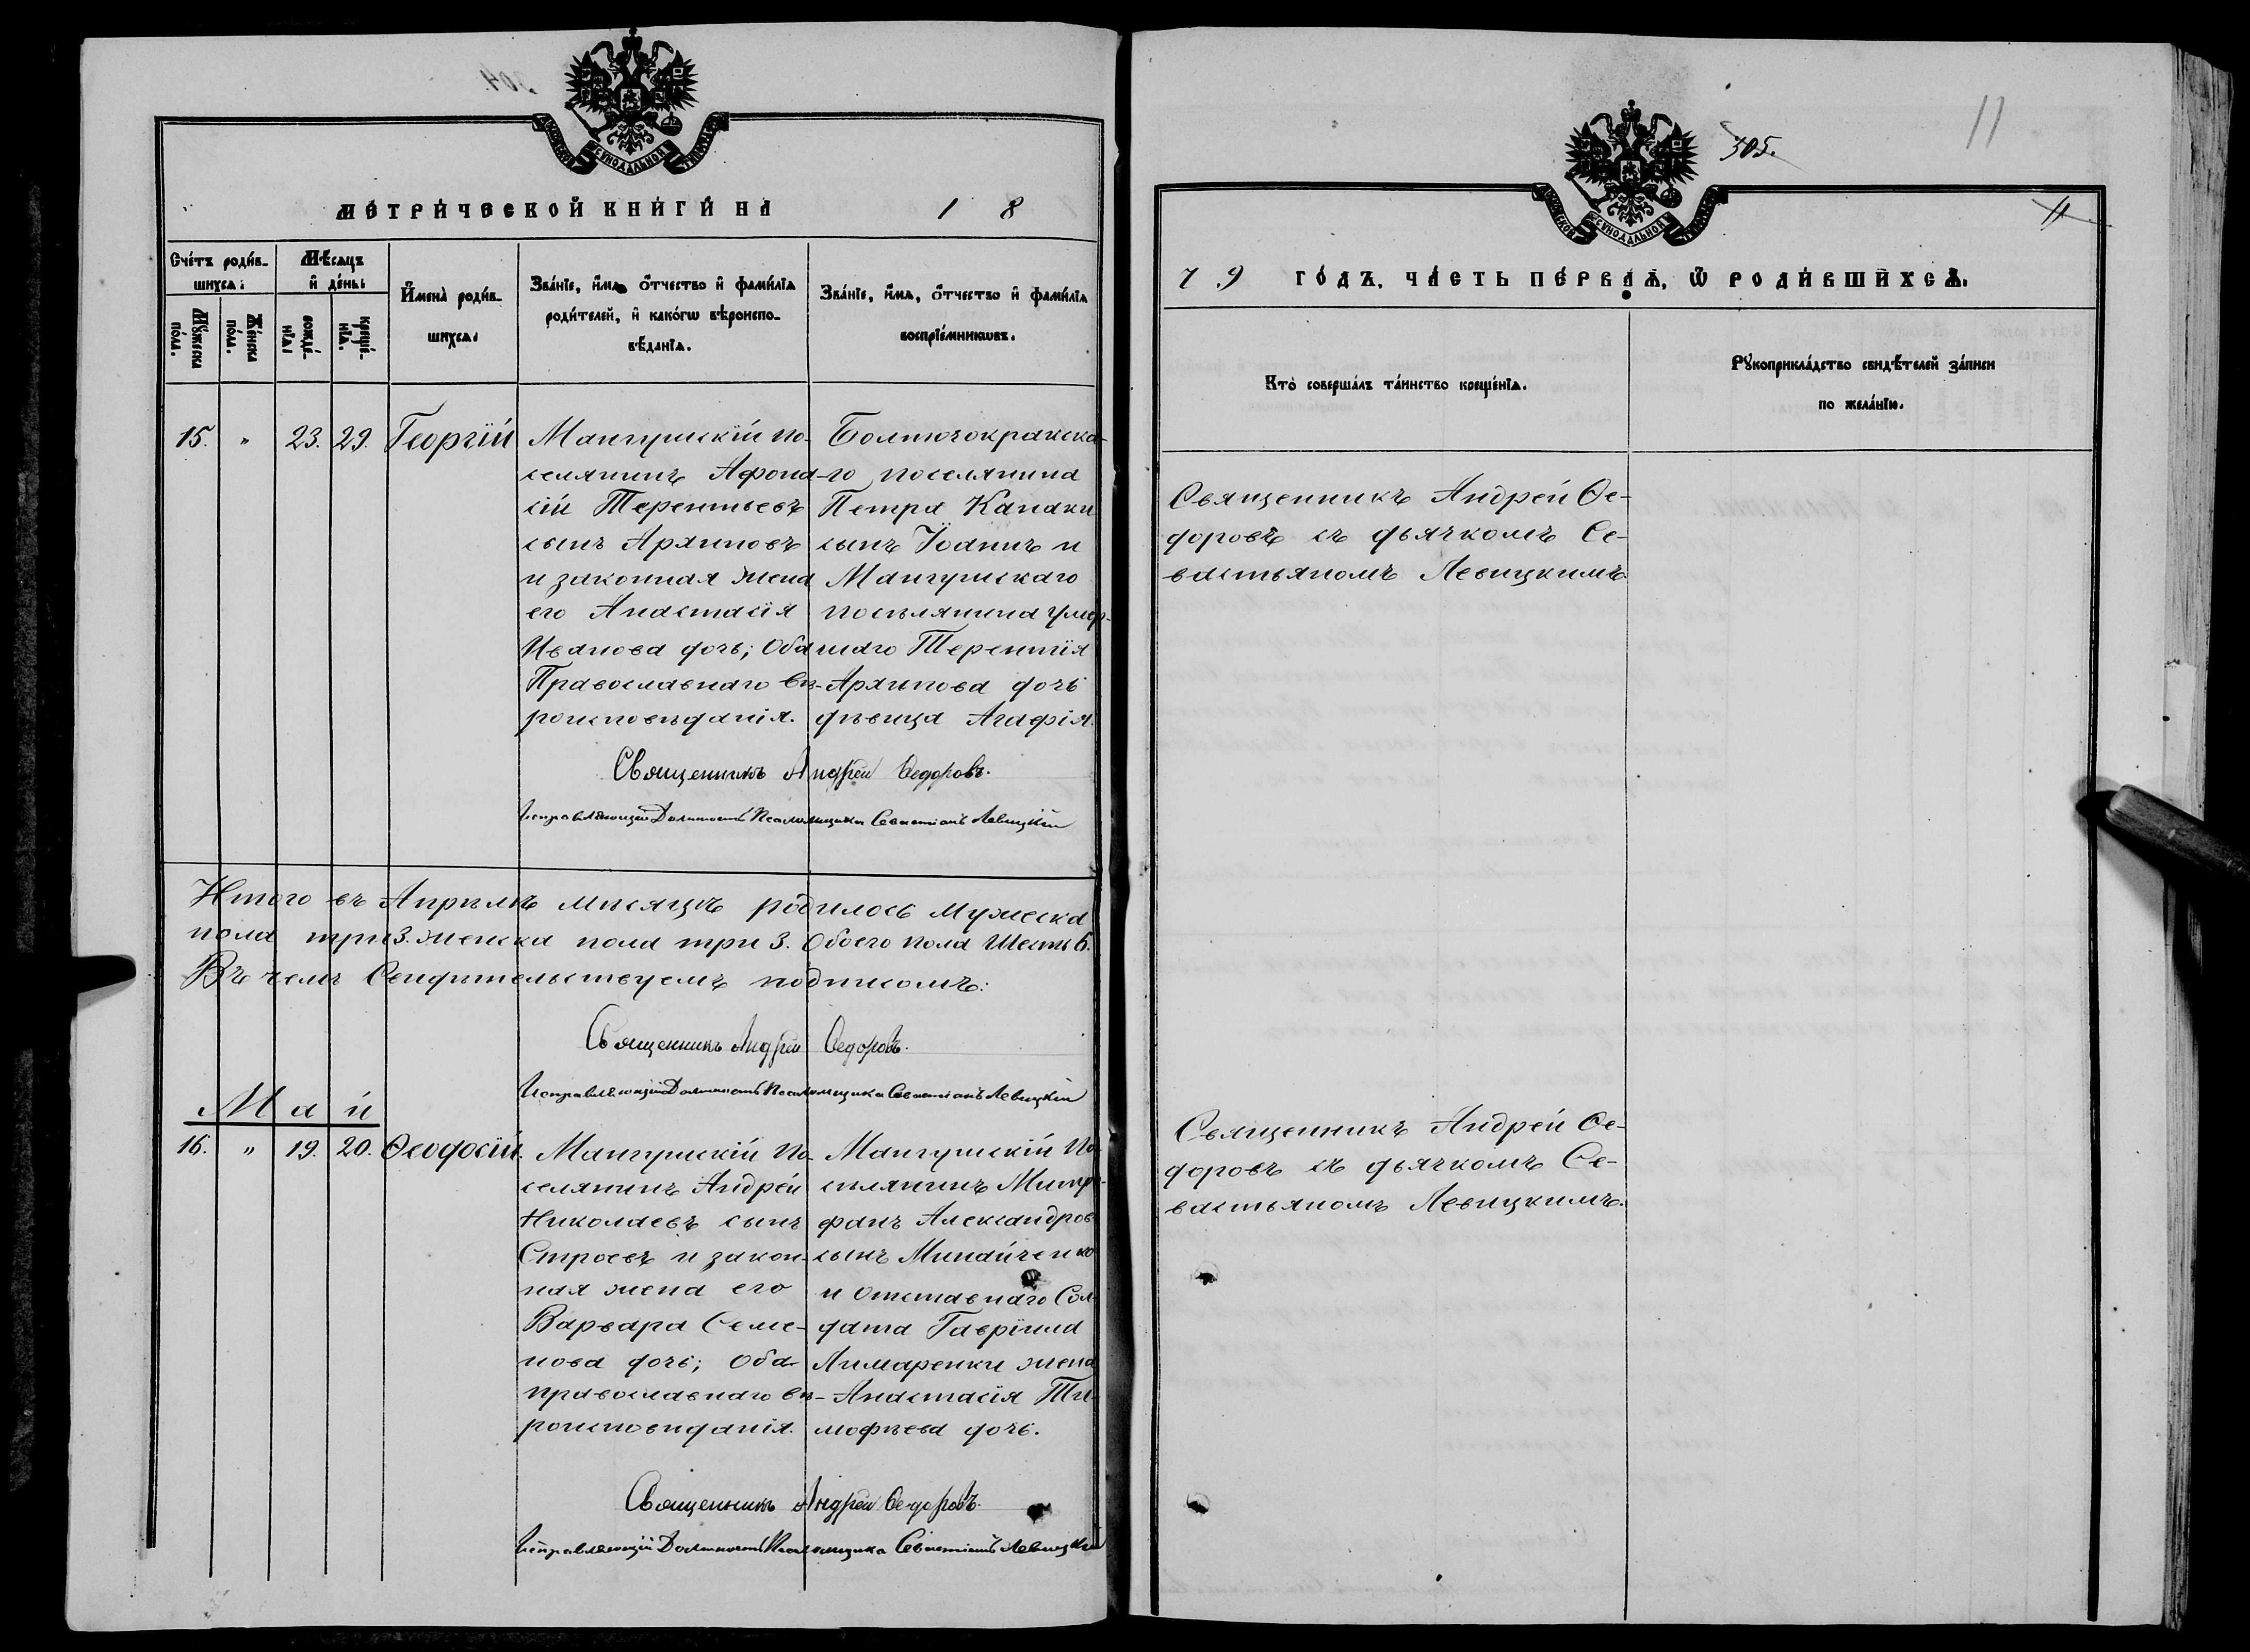 МЕТРИЧЕСКОЙ КНИГИ НА 1 8
Счетъ родив-
шихся:
Мѣсяцъ
и день:
Мужеска
пола.
Женска
пола.
рожде-
нїя:
креще-
нїя.
Имена родив-
шихся:
Званїе, имя, отчество и фамилїя
родителей, и какогѡ вѣроиспо-
вѣданїя.
Званїе, имя, отчество и фамилїя
воспрїемникѡвъ.
15.
"
23.
29.
Георгїй
Мангушскій по-
селянинъ Афона-
сій Терентьевъ
сынъ Архиповъ
и законная жена
его Анастасія
Иванова дочь; Оба
Православнаго вѣ-
роисповѣданія.
Болточокракска-
го поселянина
Петра Капаки
сынъ Іоаннъ и
Мангушскаго
посѣлянина умер-
шаго Терентія
Архипова дочь
дѣвица Агафія.
Священникъ Андрей Ѳедоровъ.
Исправляющій Должность Псаломщика Севастіанъ Левицкій
Итого въ Апрѣлѣ мѣсяцѣ родилось мужеска
пола три 3. женска пола три 3. Обоего пола Шесть 6.
Въ чемъ Свидѣтельствуемъ подписомъ:
Священникъ Андрей Ѳедоровъ.
Исправляющій Должность Псаломщика Севастіанъ Левицкій
Май
16.
"
19.
20.
Ѳеодосїй.
Мангушскій По-
селянинъ Андрей
Николаевъ сынъ
Строевъ и закон-
ная жена его
Варвара Семе-
нова дочь; Оба
православнаго вѣ-
роисповѣданія.
Мангушскій По-
сѣлянинъ Митро-
фанъ Александровъ
сынъ Минайченко
и Отставнаго Сол-
дата Гавріила
Лимаренки жена
Анастасія Ти-
мофѣева дочь.
Священникъ Андрей Ѳедоровъ.
Исправляющій Должность Псаломщика Севастіанъ Левицкій
305.
11
11
7 9 ГОДЪ, ЧАСТЬ ПЕРВАЯ, Ѿ РОДИВШИХСЯ.
Кто совершалъ таинство крещенїя.
Рꙋкоприкладство свидѣтелей записи
по желанїю.
Священникъ Андрей Ѳе-
доровъ съ дьячкомъ Се-
вастьяномъ Левицкимъ.
Священникъ Андрей Ѳе-
доровъ съ дьячкомъ Се-
вастьяномъ Левицкимъ.